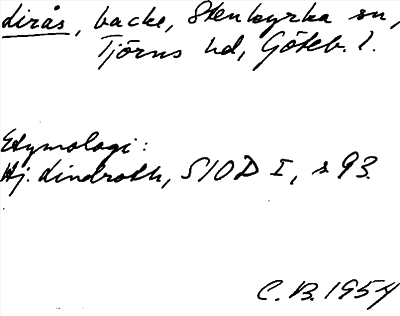 dirås, backe, Stenkyrka sn,
Tjörns hd, Göteb. l.
Etymologi:
Hj. Lindroth, SIOD I, s 93.
C. B. 1954